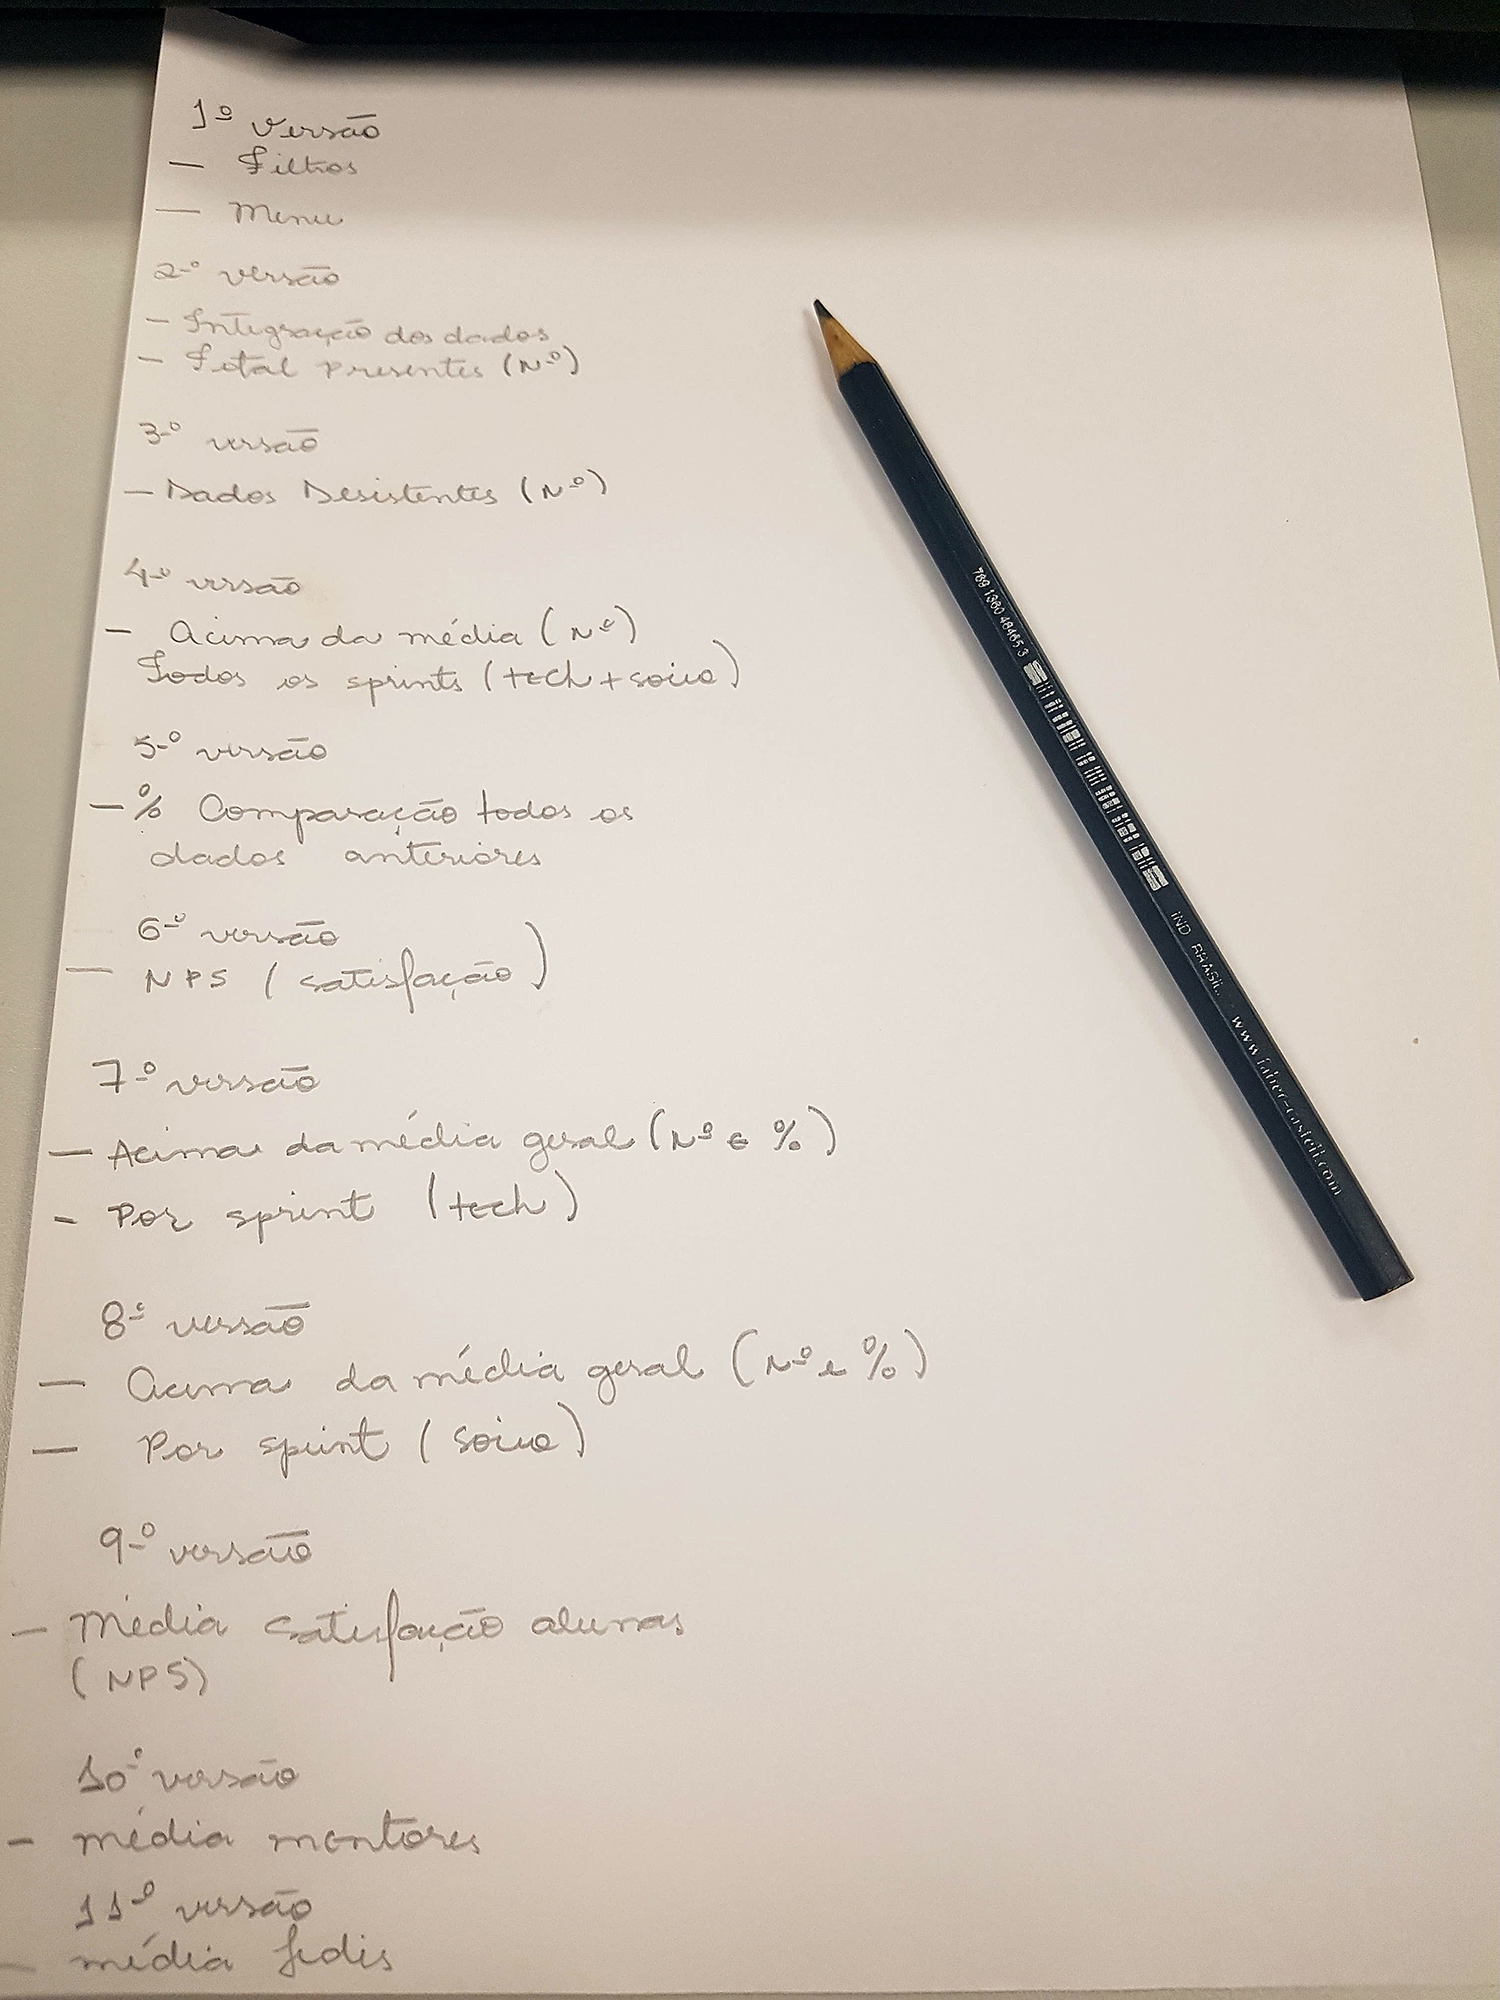 1º versão
- Filtros
- Menu
2º versão
- Integração dos dados
- Total presentes (Nº)
3º versão
- Dados Desistentes (Nº)
4º versão
- Acima da média (Nº)
Todos os sprints (tech + socio)
5º versão
- % Comparação todos os
dados anteriores
6º versão
- NPS (satisfação)
7º versão
- Acima da média geral (Nº e %)
- Por sprint (tech)
8º versão
- Acima da média geral (Nº e %)
- Por sprint (socio)
9º versão
- Média satisfação alunas
(NPS)
10º versão
- média mentores
11º versão
- média Jedis
789 1360 48465 3
IND. BRASIL. www.faber-castell.com